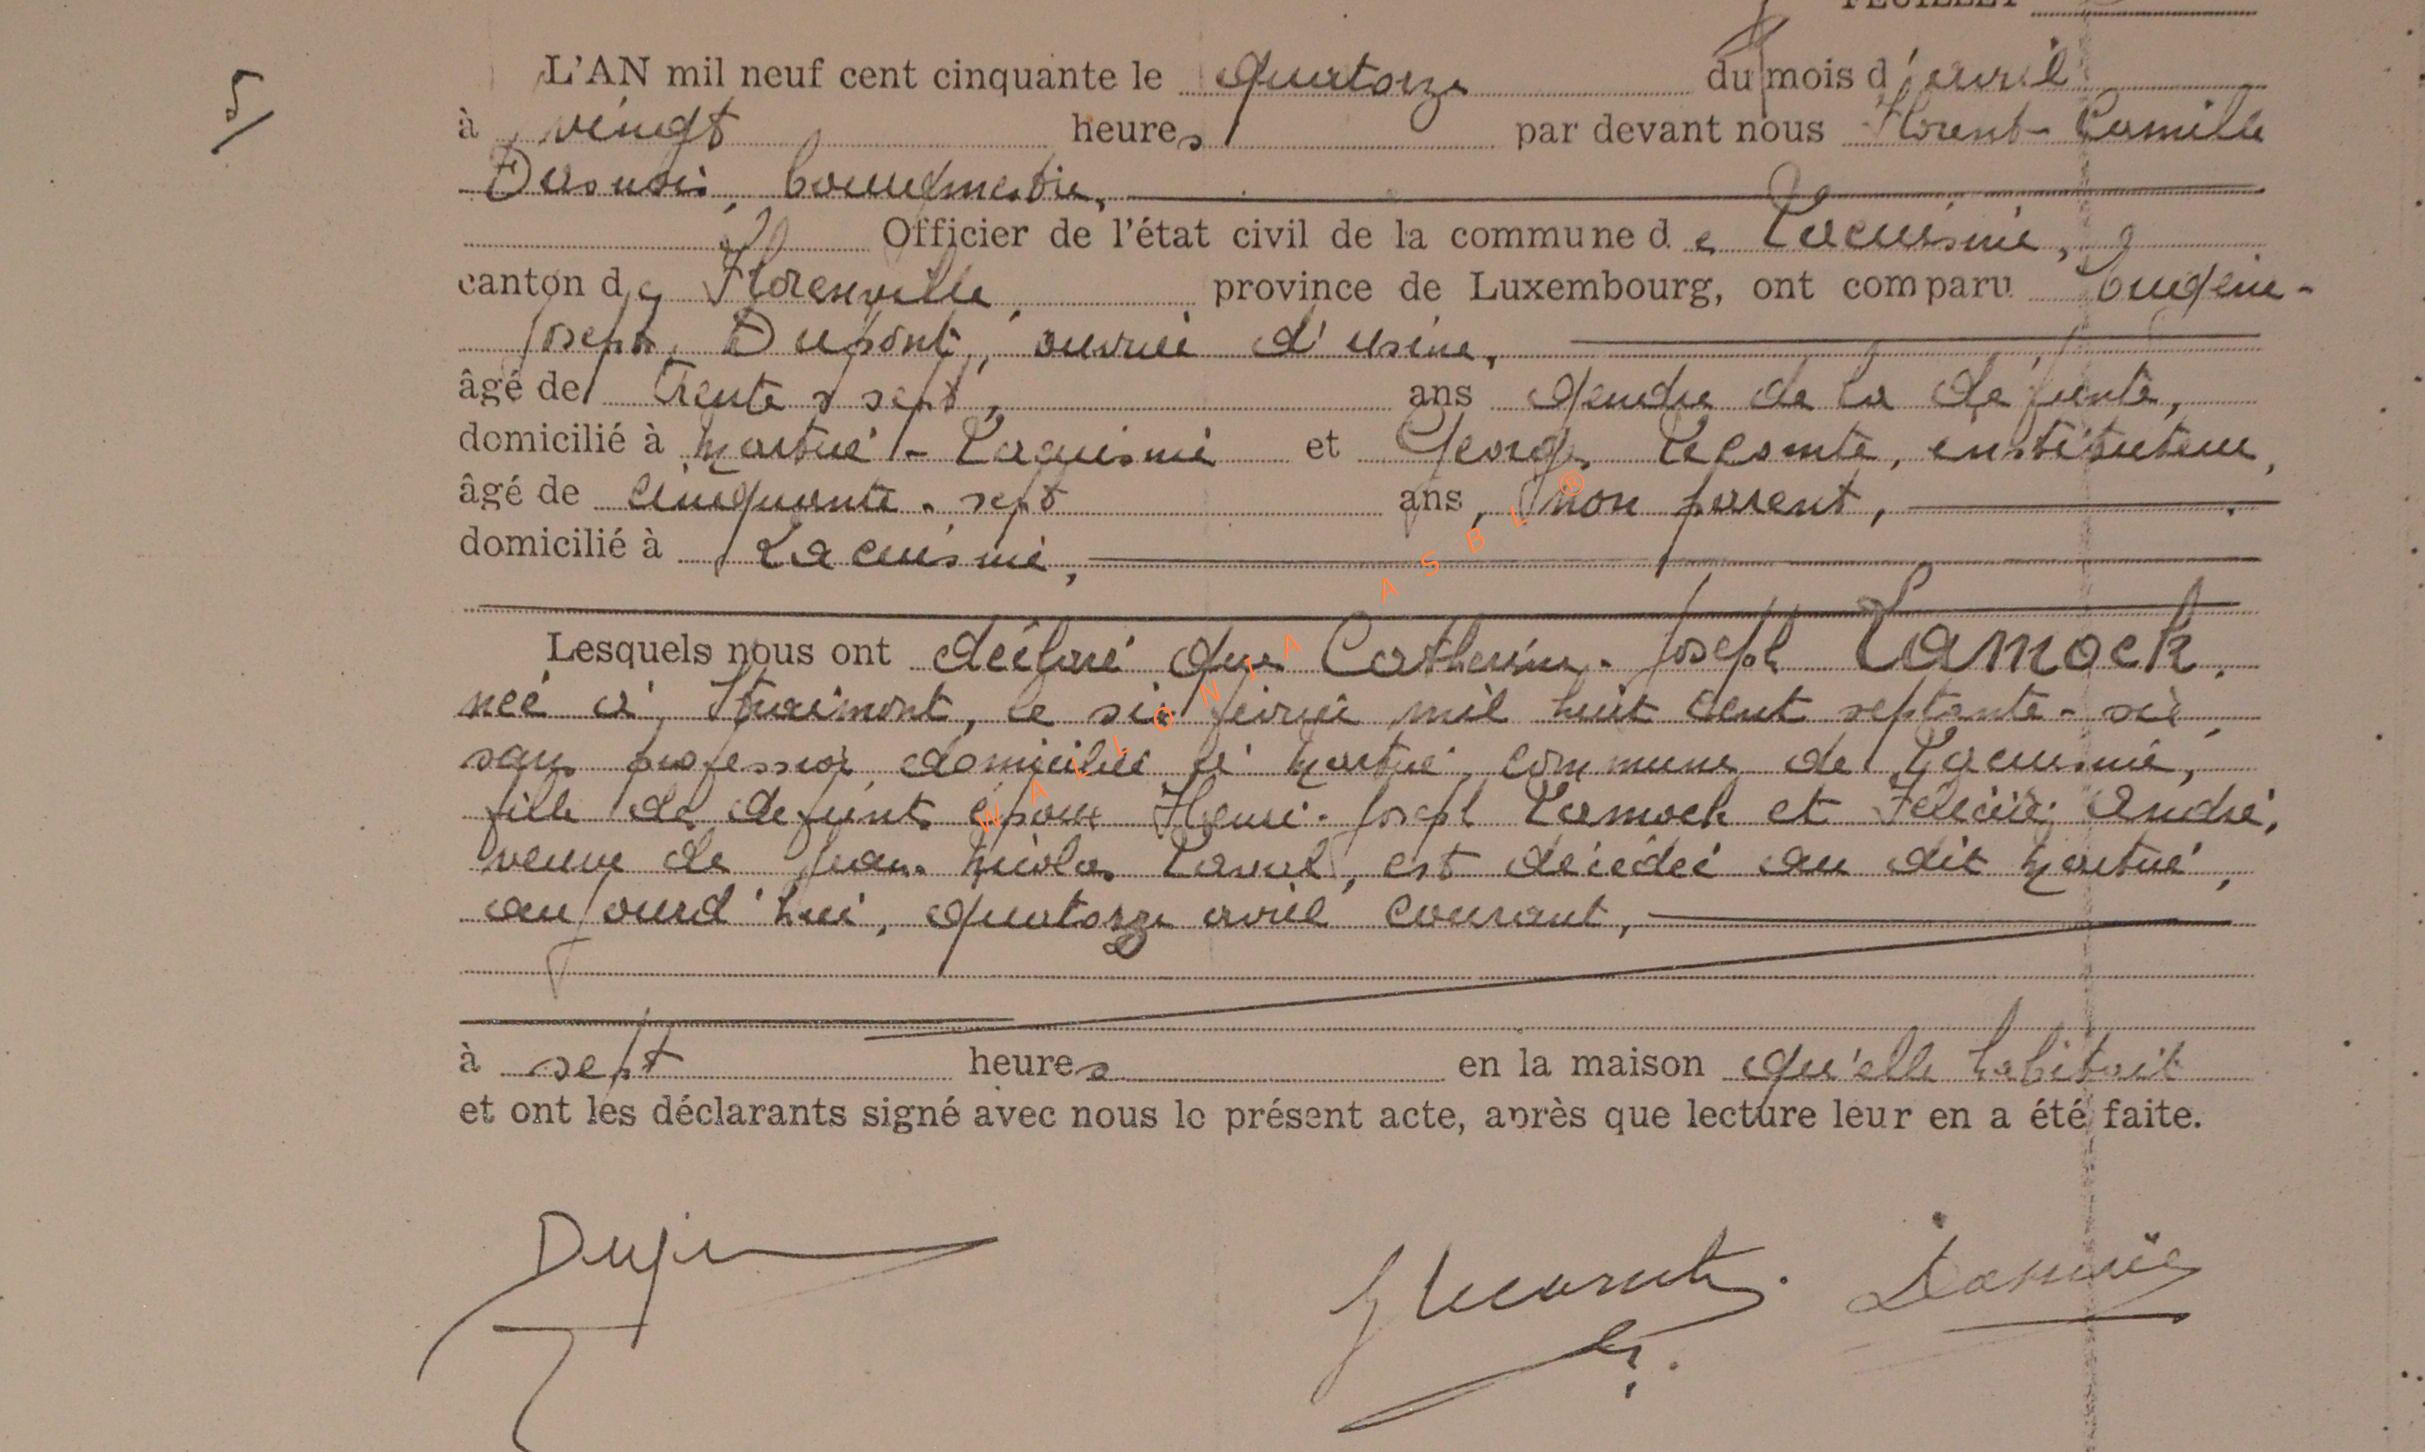 FEUILLET
5/
L'AN mil neuf cent cinquante le quatorze du mois d'avril
à vingt heures par devant nous Florent-Camille
bourgmestre,
Officier de l'état civil de la commune de Lacuisine,
canton de Florenville, province de Luxembourg, ont comparu Eugène-
Joseph Dupont, ouvrier d'usine,
âgé de trente sept, ans gendre de la défunte,
domicilié à Martué-Lacuisine et Georges Lecomte, instituteur,
âgé de cinquante-sept ans, non parent,
domicilié à Lacuisine,
Lesquels nous ont déclaré que Catherine-Joseph Lamock,
née à, le six février mil huit cent septante-six,
sans profession domiciliée à Martué, commune de Lacuisine,
fille de défunts époux Henri-Joseph Lamock et Félicité André,
veuve de Jean-Nicolas Laval, est décédée au dit Martué,
aujourd'hui, quatorze avril courant,
à sept heures en la maison qu'elle habitait
et ont les déclarants signé avec nous le présent acte, après que lecture leur en a été faite.
GLecomte
WALLONIA ASBL ®